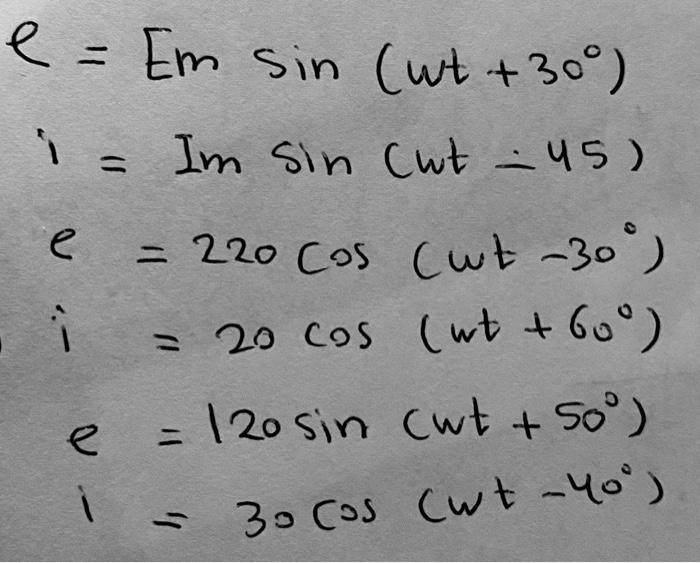 e = Em sin (wt + 30°)
i = Im sin (wt - 45)
e = 220 cos (wt - 30°)
i = 20 cos (wt + 60°)
e = 120 sin (wt + 50°)
i = 30 cos (wt - 40°)